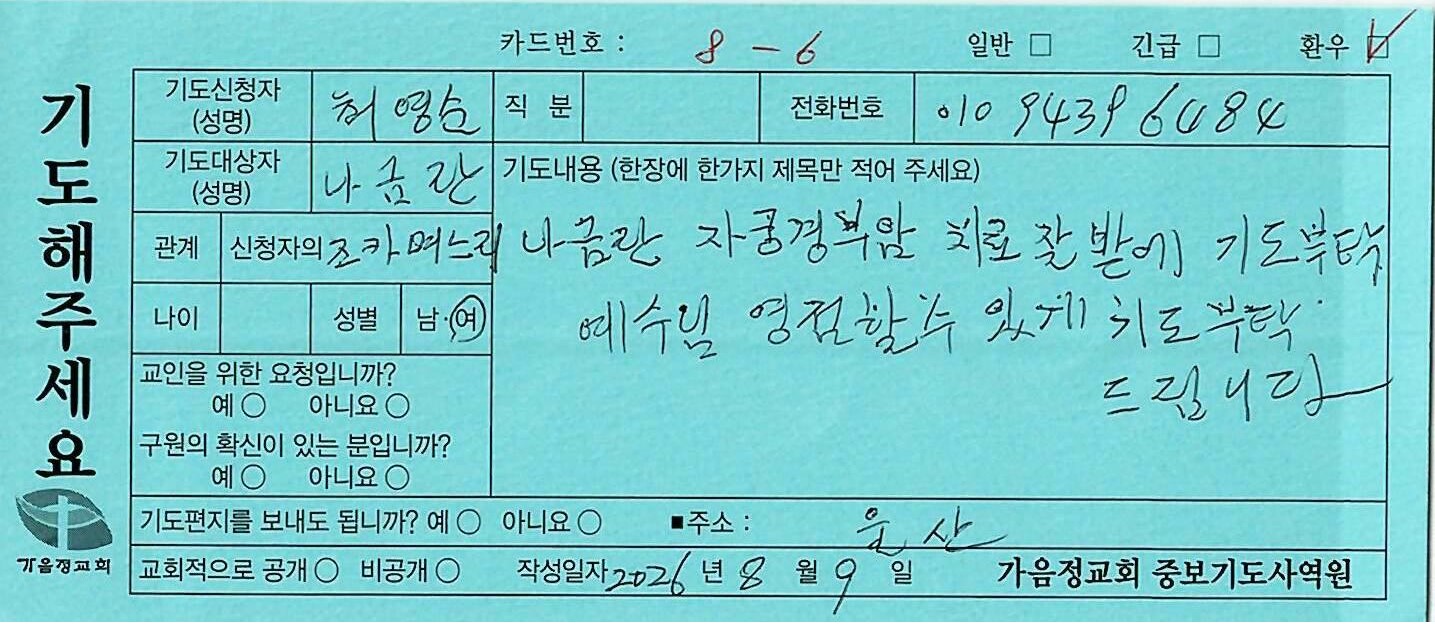 카드번호 : 8 - 6 일반 □ 긴급 □ 환우 ☑
기도해주세요
기도신청자 (성명) 최영순 직 분 전화번호 010 9439 6484
기도대상자 (성명) 나금란
기도내용 (한장에 한가지 제목만 적어 주세요)
관계 신청자의 조카며느리
나금란 자궁경부암 치료 잘 받에 기도부탁
예수님 영접할수 있게 기도부탁
드립니다
나이 성별 남·여
교인을 위한 요청입니까?
예 ○ 아니요 ○
구원의 확신이 있는 분입니까?
예 ○ 아니요 ○
기도편지를 보내도 됩니까? 예 ○ 아니요 ○ ■주소 : 울산
교회적으로 공개 ○ 비공개 ○ 작성일자 2026 년 8 월 9 일 가음정교회 중보기도사역원
가음정교회